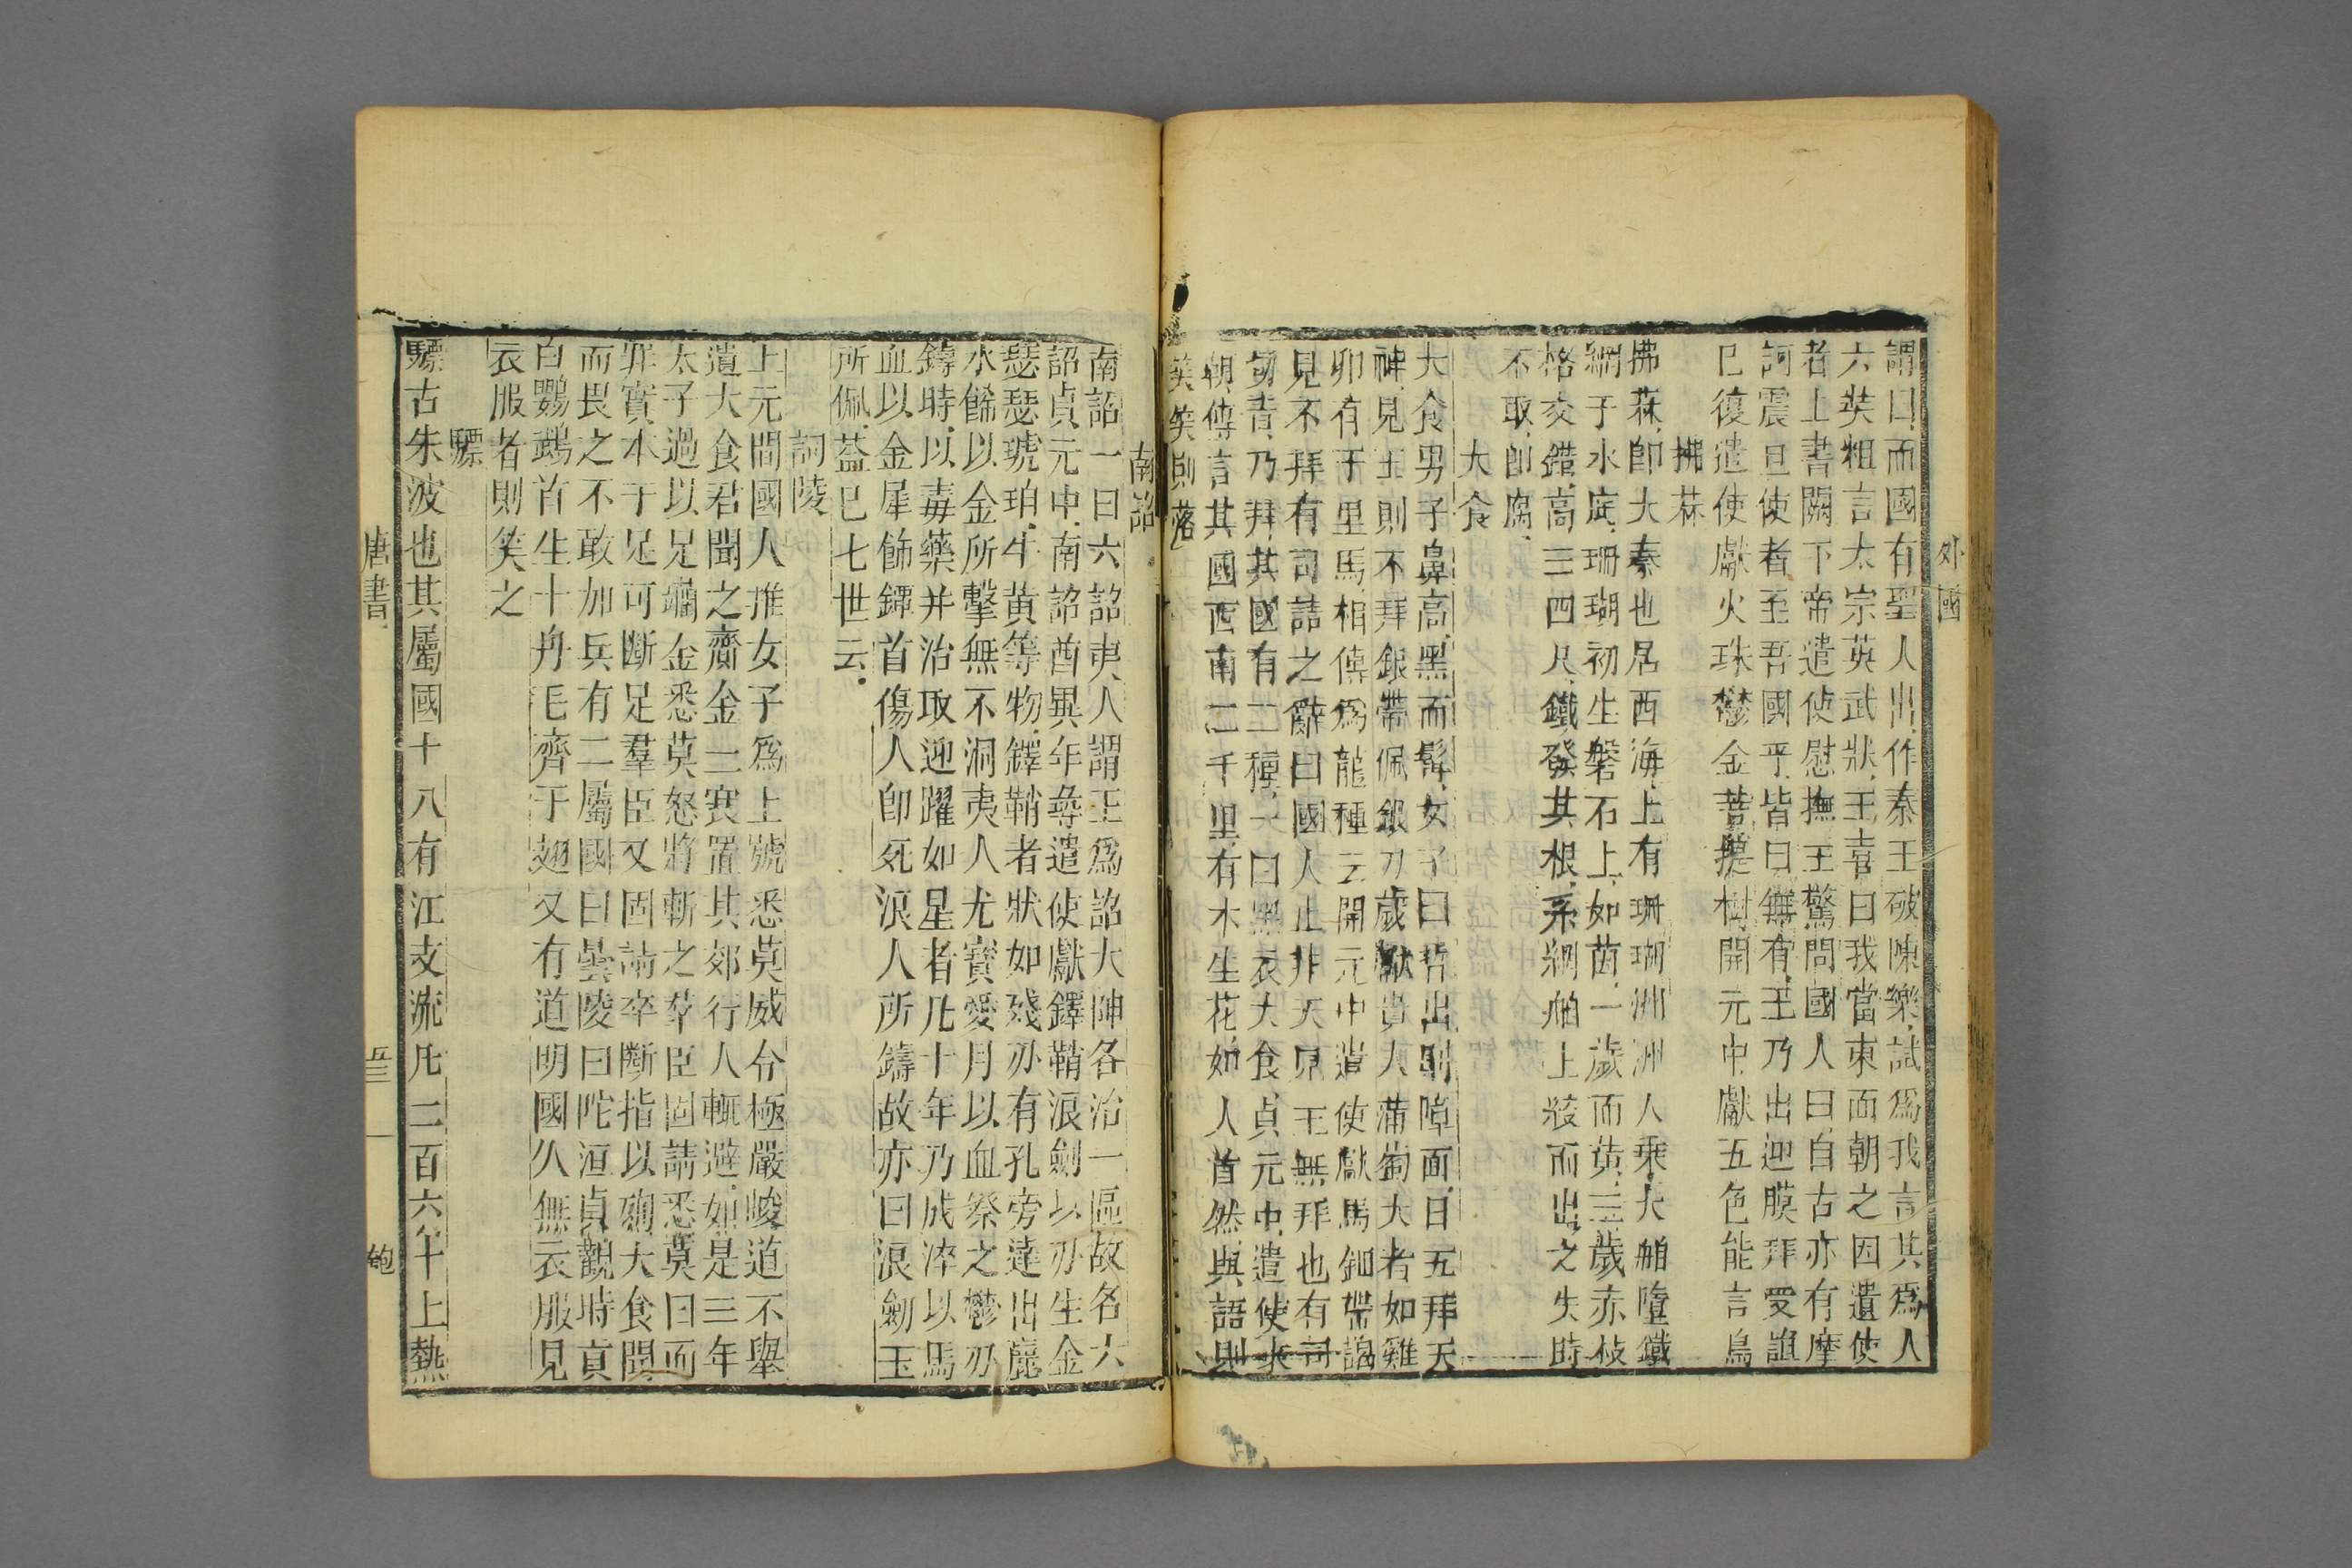 外國
謂曰而國有聖人出作秦王破陳樂試爲我言其爲人
六奘粗言太宗英武狀王喜曰我當東面朝之因遣使
者上書闕下帝遣使慰撫王驚問國人曰自古亦有摩
訶震旦使者至吾國乎皆曰無有王乃出迎膜拜受詔
巳復遣使獻火珠鬱金菩提樹開元中獻五色能言鳥
拂菻
拂菻卽大秦也居西海上有珊瑚洲洲人乗大舶墮鐵
網于水底珊瑚初生磐石上如菌一歲而黄三歲赤枝
格交錯高三四尺鐵發其根系網舶上絞而出之失時
不取卽腐
大食
大食男子鼻高黑而髯女子白皙出則障面日五拜天
神見王則不拜銀帶佩銀刀歲獻貴人蒲萄大者如雞
卵有千里馬相傳爲龍種云開元中遣使獻馬鈿帶謁
見不拜有司詰之辭曰國人止拜天見王無拜也有司
切責乃拜其國有二種一曰黑衣大食貞元中遣使來
朝傳言其國西南二千里有木生花如人首然與語則
笑笑則落
南詔
南詔一曰六詔夷人謂王爲詔大帥各治一區故名六
詔貞元中南詔酋異年尋遣使獻鐸鞘浪劍以刅生金
瑟瑟琥珀牛黄等物鐸鞘者狀如殘刅有孔旁達出麗
水飾以金所擊無不洞夷人尤寳愛月以血祭之鬱刅
鑄時以毒藥并治取迎躍如星者凡十年乃成淬以馬
血以金犀飾鐔首傷人卽死浪人所鑄故亦曰浪劍王
所佩葢巳七世云
訶陵
上元間國人推女子爲上號悉莫威令極嚴峻道不舉
遺大食君聞之齎金一褁置其郊行人輒避如是三年
太子過以足躪金悉莫怒將斬之羣臣固請悉莫曰而
罪實本于足可斷足羣臣又固請卒斷指以殉大食聞
而畏之不敢加兵有二屬國曰曇陵曰陀洹貞觀時貢
白鸚鵡首生十丹毛齊于翅又有道明國人無衣服見
衣服者則笑之
驃
驃古朱波也其屬國十八有江支流凡二百六十上熱
唐書
五三
鮑